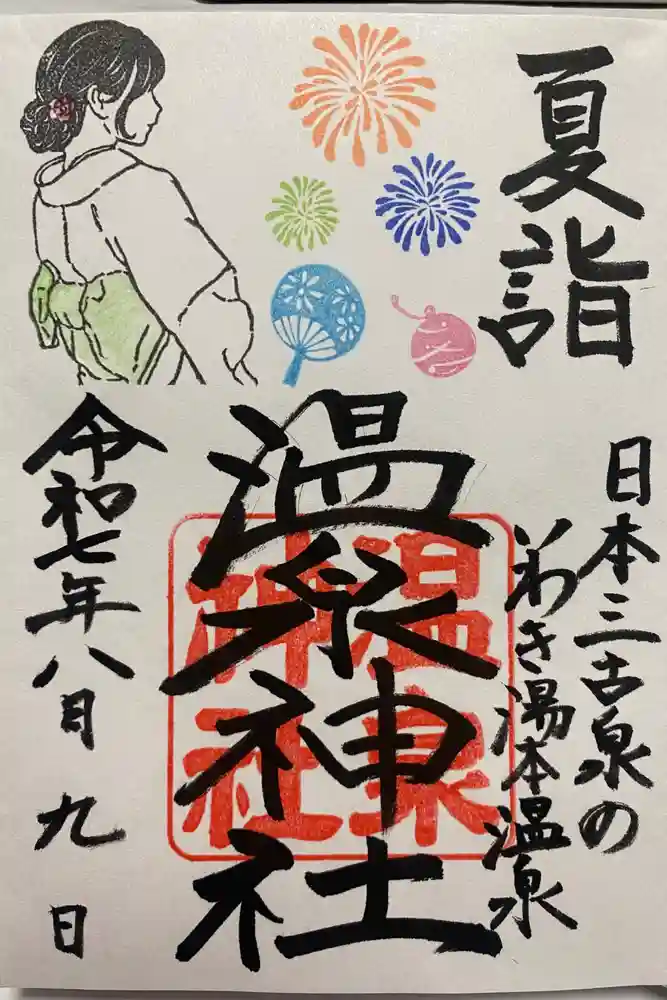 夏詣
日本三古泉の
いわき湯本温泉
温泉神社
温泉
神社
令和七年八月九日